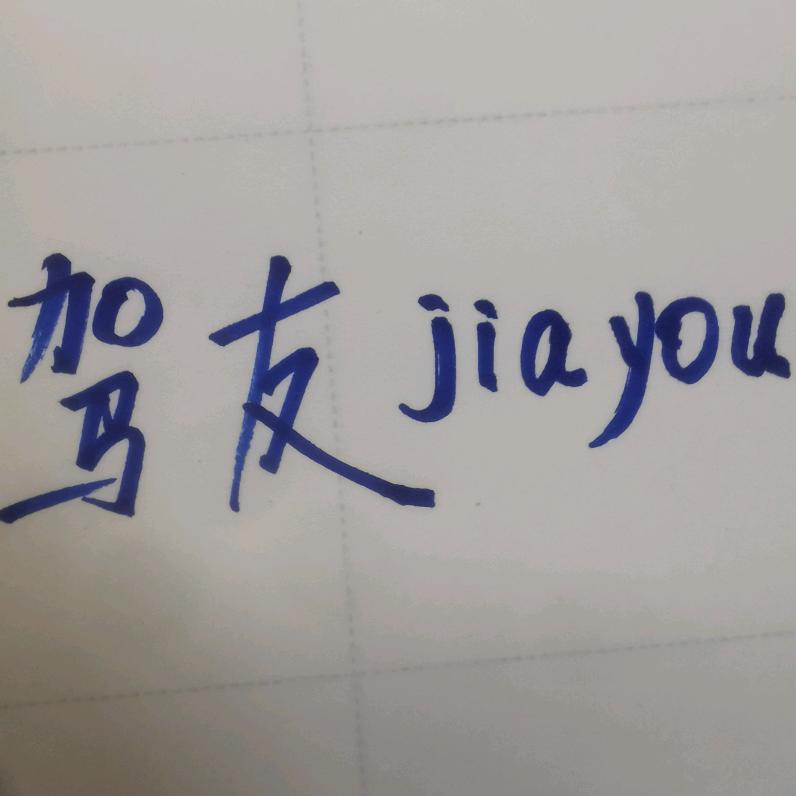 驾友 jiayou